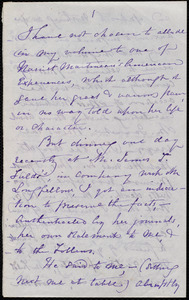 1
I have not chosen to allude
in my volume to one of
Harriet Martineau's American
Experiences, which although it
gave her great & various pain
in no way told upon her life
or character.
But dining one day
recently at Mr. James T.
Fields's in company with Mr.
Longfellow I got an
to preserve the facts—
Authenticated by her journals,
our own statement to me &
to the Follens.
He said to me— (
next me at table) abruptly